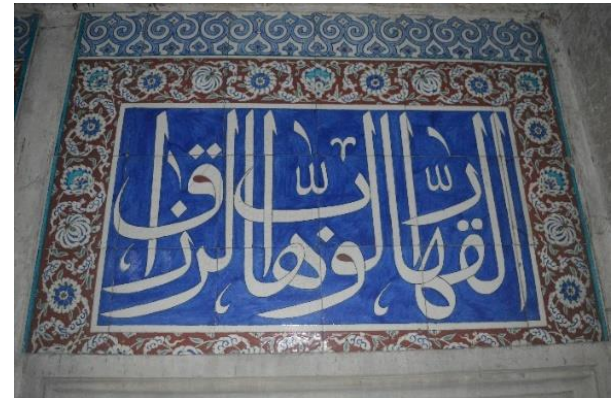 القهّار الوهّاب الرزاق